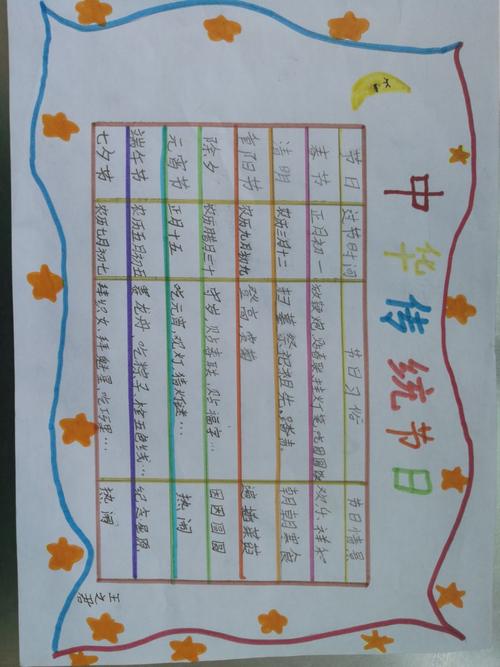 中华传统节日
节日 过节时间 节日习俗 节日情景
春节 正月初一 放鞭炮 贴春联 挂灯笼 吃团圆饭 欢乐 祥和
清明 农历三月十二 扫墓祭祀祖先、踏青 朝朝寒食
重阳节 农历九月初九 登高 赏菊 遍插茱萸
除夕 农历腊月三十 守岁 贴春联 贴福字… 团团圆圆
元宵节 正月十五 吃元宵 观灯 猜灯谜… 热闹
端午节 农历五月初五 赛龙舟 吃粽子 栓五色线… 纪念屈原
七夕节 农历七月初七 拜织女 拜魁星 吃巧果… 热闹
王之君